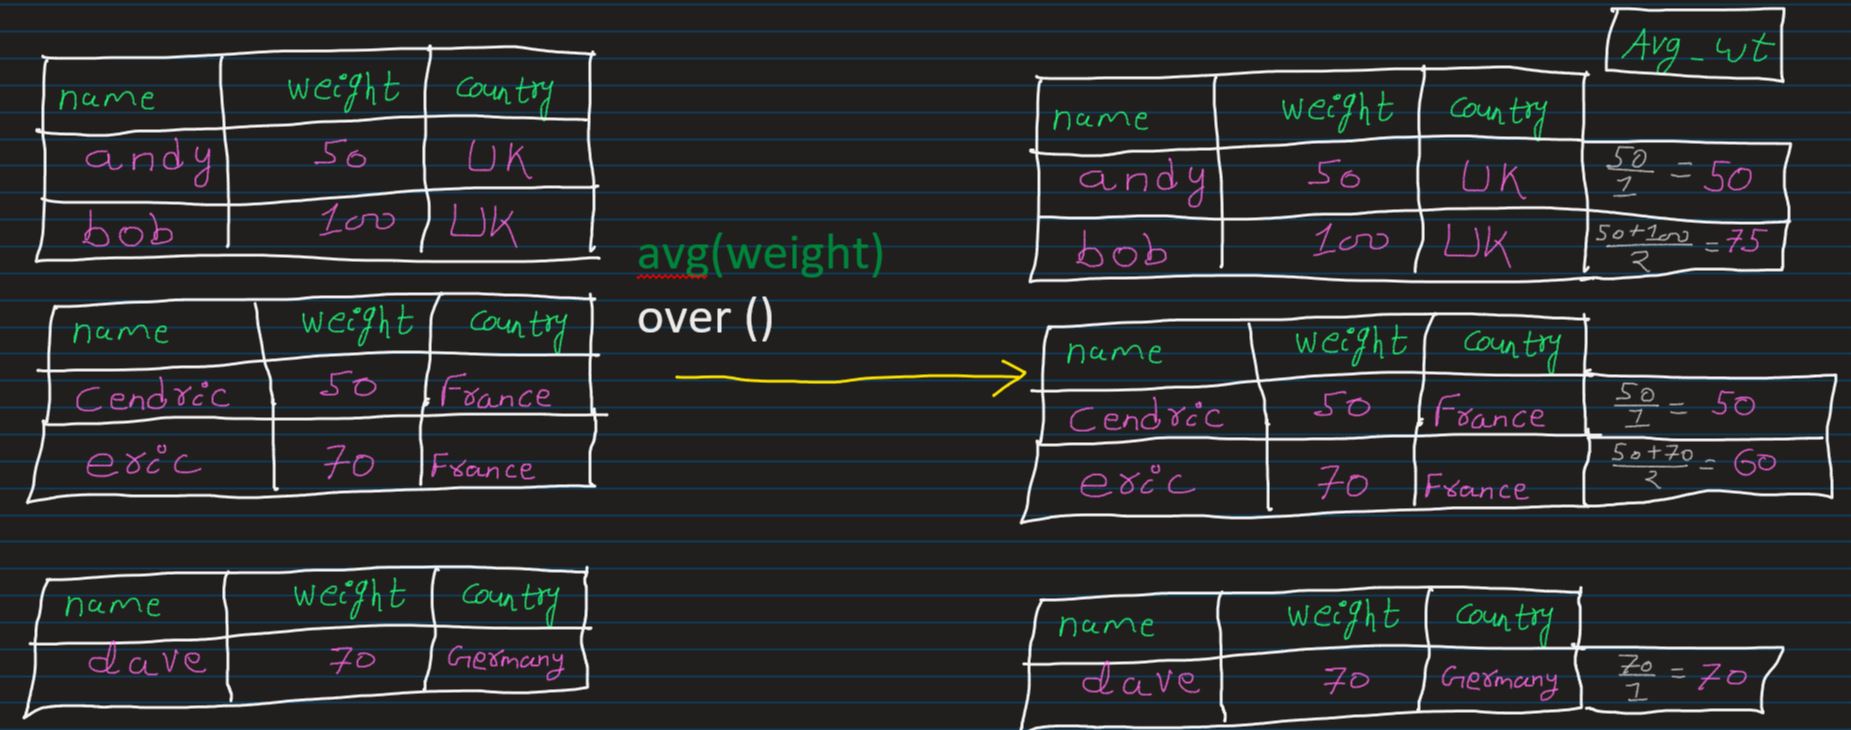 name weight country
andy 50 UK
bob 100 UK
name weight country
Cendric 50 France
eric 70 France
name weight country
dave 70 Germany
avg(weight)
over ()
Avg_wt
name weight country
andy 50 UK 50/1 = 50
bob 100 UK 50+100/2 = 75
name weight country
Cendric 50 France 50/1 = 50
eric 70 France 50+70/2 = 60
name weight country
dave 70 Germany 70/1 = 70